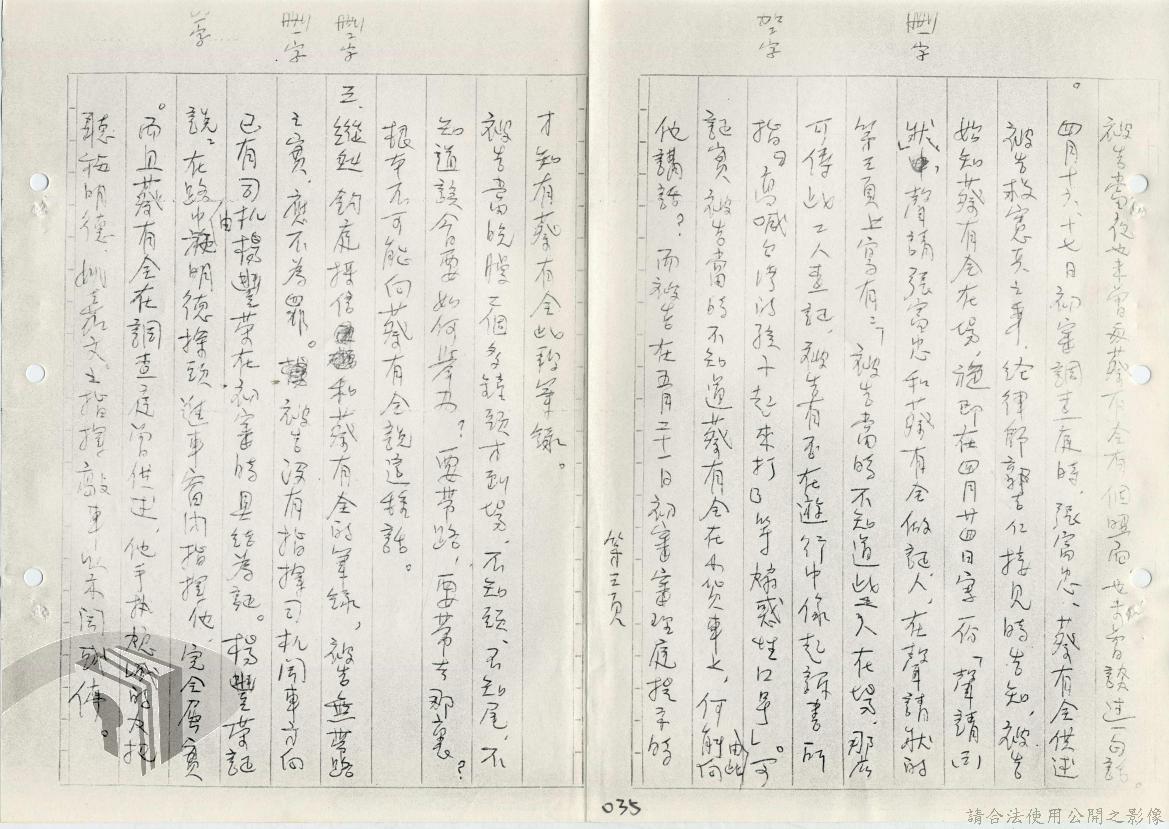 被告當夜也未曾與蔡有全有個照面也未曾談過一句話。
四月十六、十七日初審調查庭時，張富忠、蔡有全供述
被告救憲兵之事，經律師郭吉仁接見時告知，被告
始知蔡有全在場，施即在四月廿四日寫一份「聲請回
狀」，聲請張富忠和蔡有全做証人，在聲請狀的
第三頁上寫有：「被告當時不知道此工人在場，那麼
可傳此工人查証，被告有否在遊行中像起訴書所
指『高喊台灣的孩子起來打』等煽惑性口号」。可
証實被告當時不知道蔡有全在小貨車上，何能向
由此
他講話？而被告在五月二十一日初審審理庭提示時
第三頁
刪字
刪字
才知有蔡有全此段筆錄。
被告當晚慢一個多鐘頭才到場，不知頭、不知尾，不
知道該合要如何舉办？要帶路，要帶去那裏？
根本不可能向蔡有全說這種話。
三、縱然鈞庭採信和蔡有全的筆錄，被告無帶路
之實，應不為罪。被告沒有指揮司机開車方向
已有司机楊豐荣在初審時具結為証。楊豐荣証
說，在路中由施明德探頭進車窗內指揮他，完全屬實
。而且蔡有全在調查庭曾供述，他手執
聽施明德、姚嘉文之指揮敲車以示開或停。
刪字
刪字
035
請合法使用公開之影像